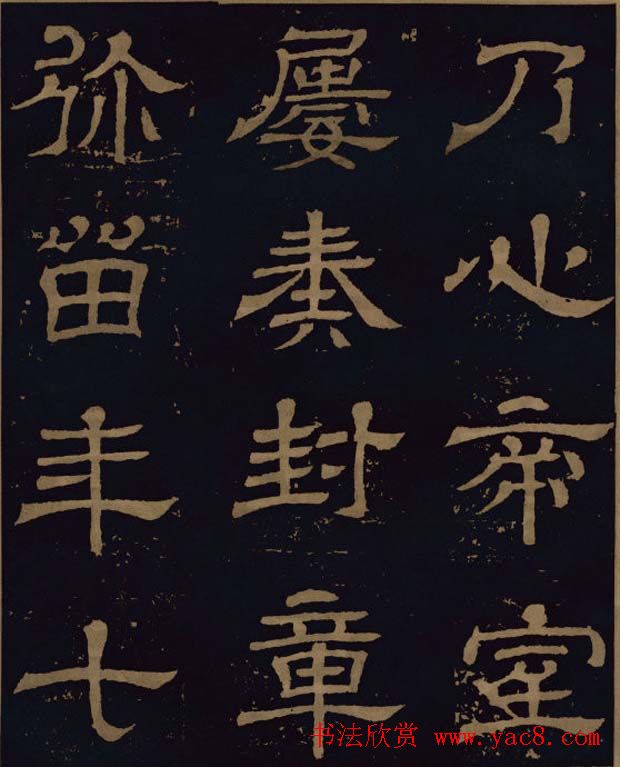 乃心帝室
屢奏封章
弥留年七
书法欣赏 www.yac8.com